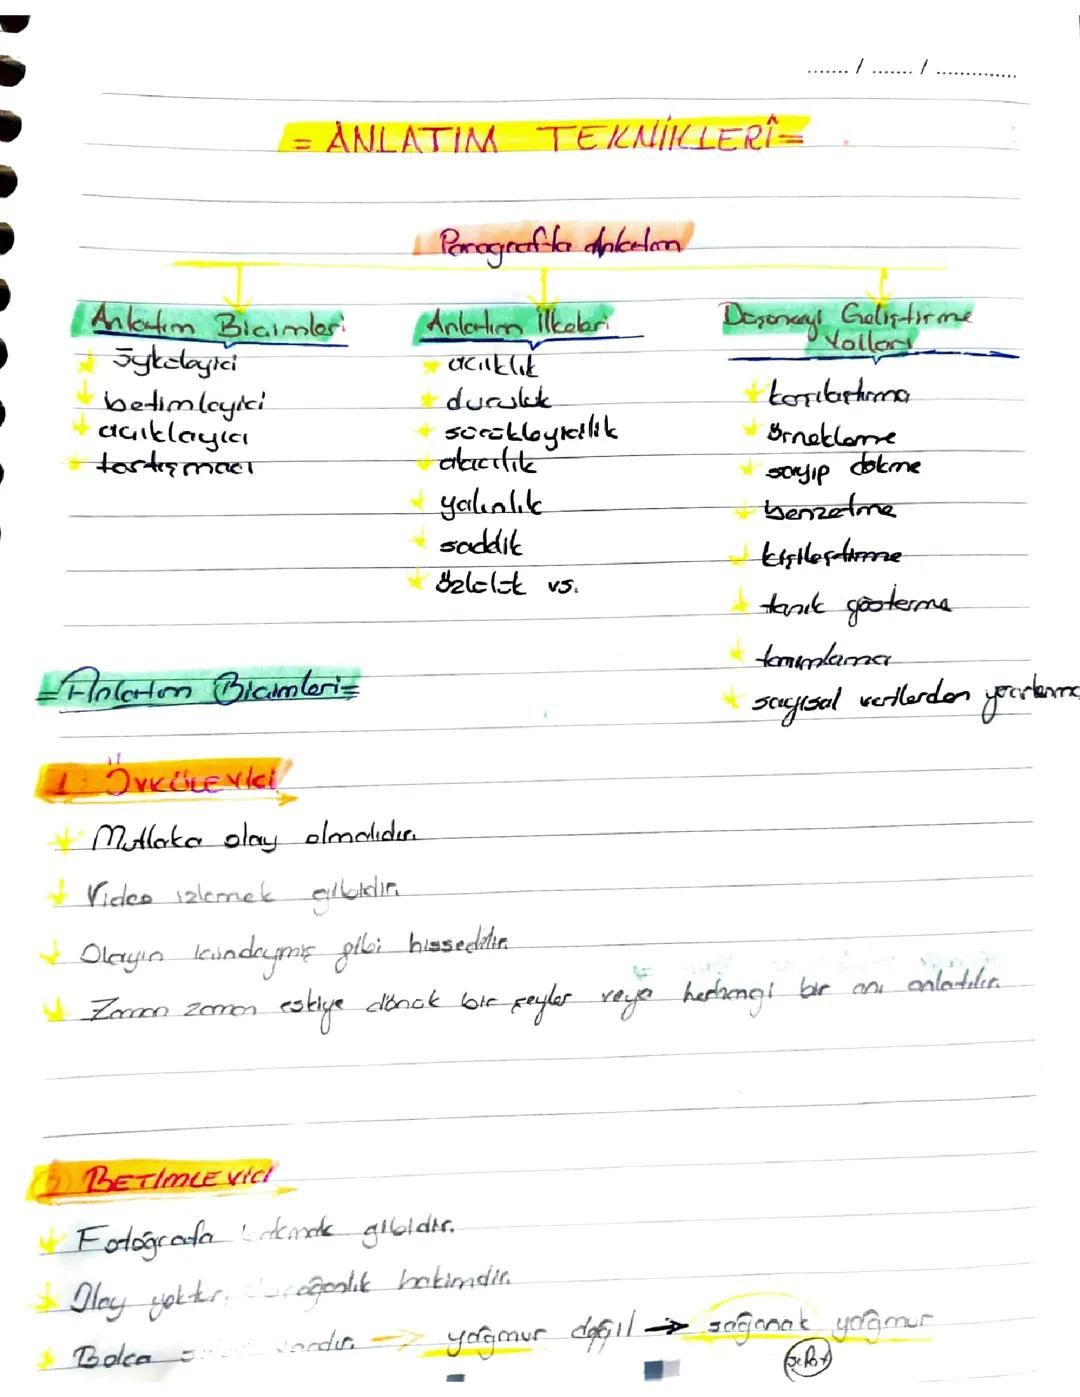 ....... / ....... / ..............
= ANLATIM TEKNİKLERİ =
Paragrafta Anlatım
Anlatım Biçimleri
öykeleyici
betimleyici
açıklayıcı
tartışmacı
Anlatım İlkeleri
açıklık
duruluk
sürükleyicilik
akıcılık
yalınlık
özlülük vs.
Düşünceyi Geliştirme
Yolları
karşılaştırma
örnekleme
sayıp dökme
benzetme
kişileştirme
tanık gösterme
tanımlama
sayısal verilerden
= Anlatım Biçimleri =
1 ÖYKÜLEYİCİ
Mutlaka olay olmalıdır.
Video izlemek gibidir.
Olayın içindeymiş gibi hissedilir.
Zaman zaman eskiye dönük bir şeyler veya herhangi bir anı anlatılır.
BETİMLEYİCİ
Fotoğrafa gibidir.
Olay yoktur, hakimdir.
Bolca vardır. → yağmur değil → sağanak yağmur
sıfat